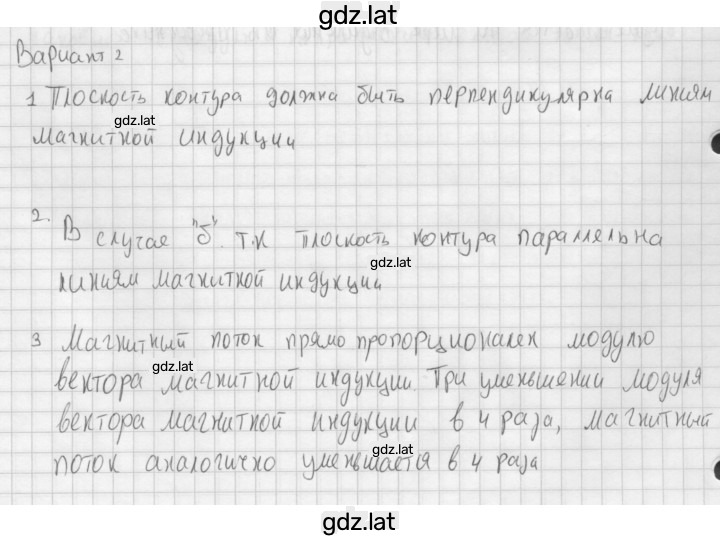 gdz.lat
Вариант 2
1 Плоскость контура должна быть перпендикулярна линиям
gdz.lat
магнитной индукции
2. В случае "б". т.к плоскость контура параллельна
gdz.lat
линиям магнитной индукции
3 Магнитный поток прямо пропорционален модулю
gdz.lat
вектора магнитной индукции. При уменьшении модуля
вектора магнитной индукции в 4 раза, магнитный
gdz.lat
поток аналогично уменьшается в 4 раза
gdz.lat